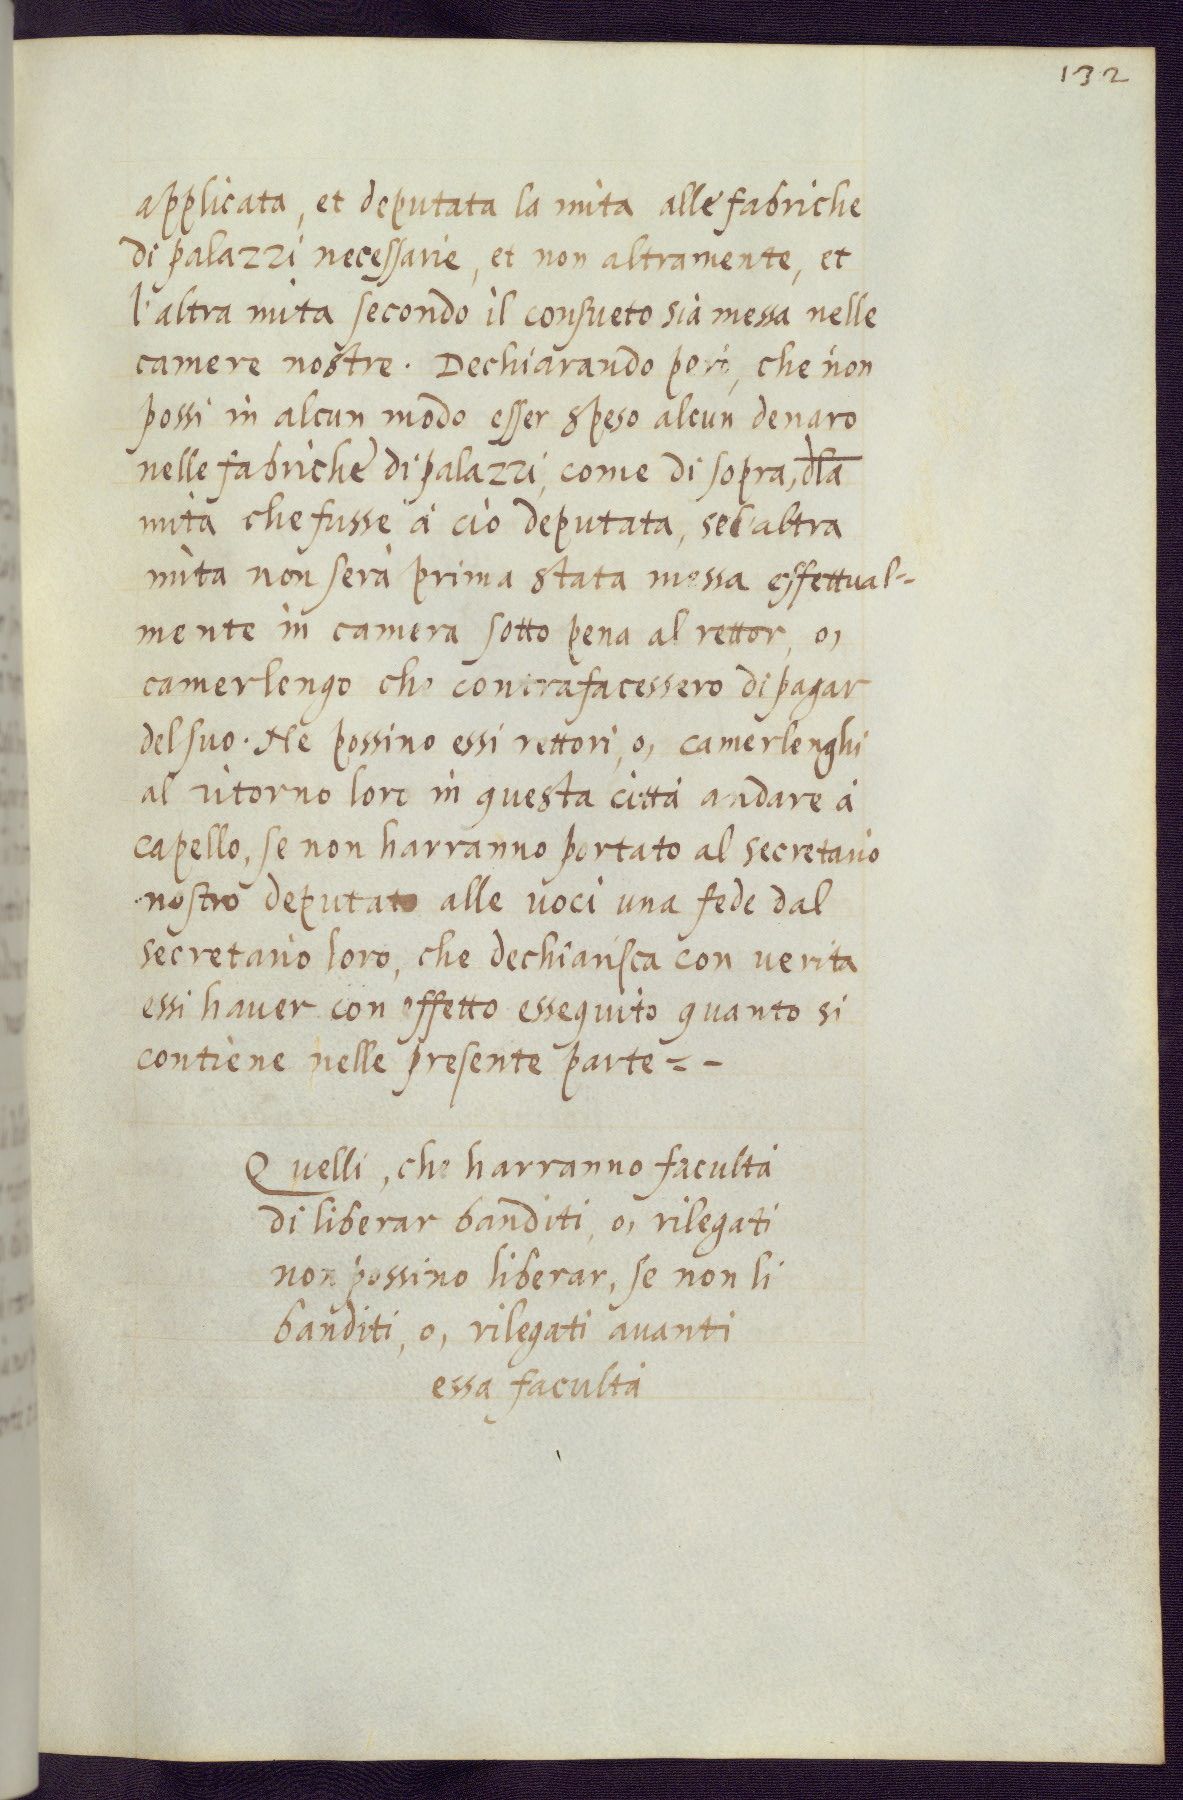 132
applicata, et deputata la mità alle fabriche
di palazzi necessarie, et non altramente, et
l'altra mità secondo il consueto sia messa nelle
camere nostre. Dechiarando però, che non
possi in alcun modo esser speso alcun denaro
nelle fabriche di palazzi, come di sopra, dla
mità che fusse à ciò deputata, se l'altra
mità non serà prima stata messa effettual=
mente in camera sotto pena al rettor, o,
camerlengo che contrafacessero di pagar
del suo. Ne possino essi rettori, o, camerlenghi
al ritorno loro in questa città andare à
capello, se non harranno portato al secretario
nostro deputato alle voci una fede dal
secretario loro, che dechiarisca con verità
essi haver con effetto essequito quanto si
contiene nelle presente parte = -
Quelli, che harranno facultà
di liberar banditi, o, rilegati
non possino liberar, se non li
banditi, o, rilegati avanti
essa facultà